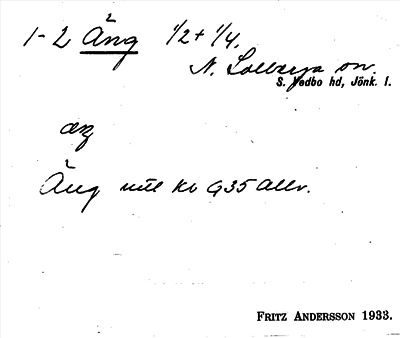 1-2 Äng 1/2 + 1/4.
N. Solberga sn.
S. Vedbo hd, Jönk. l.
Äng mtl kr 935 allr.
FRITZ ANDERSSON 1933.